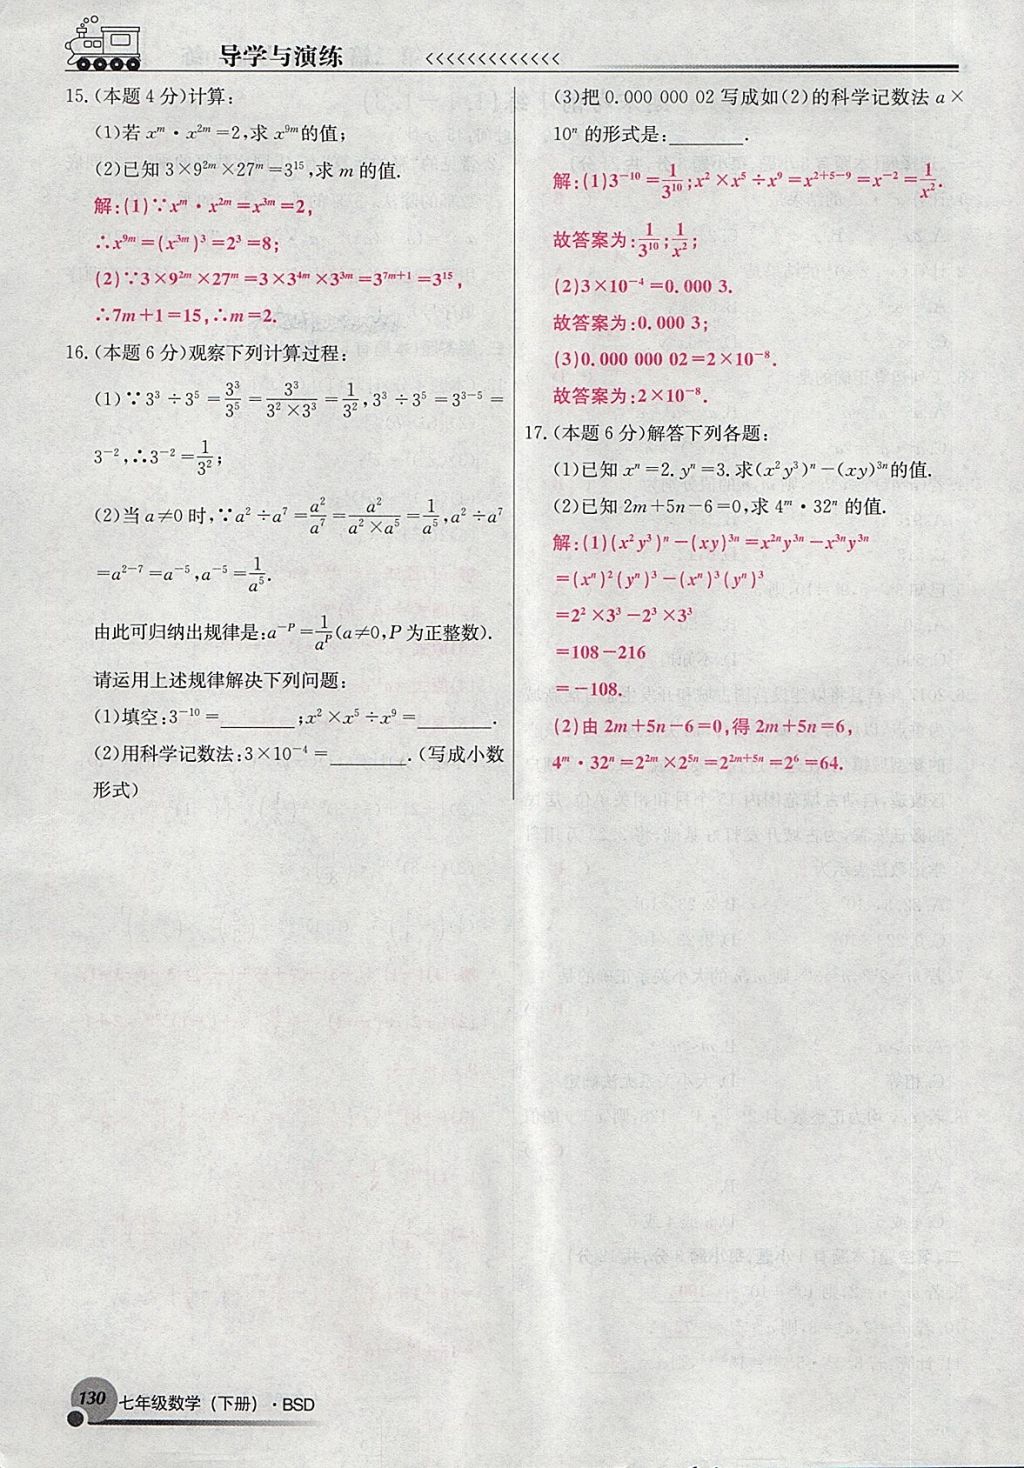 导学与演练
15.(本题4分)计算:
(1)若 xᵐ·x²ᵐ=2,求 x⁹ᵐ的值;
(2)已知 3×9²ᵐ×27ᵐ=3¹⁵,求 m 的值.
解:(1)∵xᵐ·x²ᵐ=x³ᵐ=2,
∴x⁹ᵐ=(x³ᵐ)³=2³=8;
(2)∵3×9²ᵐ×27ᵐ=3×3⁴ᵐ×3³ᵐ=3⁷ᵐ⁺¹=3¹⁵,
∴7m+1=15,∴m=2.
16.(本题6分)观察下列计算过程:
(1)∵3³÷3⁵=3³/3⁵=3³/(3²×3³)=1/3²,3³÷3⁵=3³⁻⁵=
3⁻²,∴3⁻²=1/3²;
(2)当 a≠0 时,∵a²÷a⁷=a²/a⁷=a²/(a²×a⁵)=1/a⁵,a²÷a⁷
=a²⁻⁷=a⁻⁵,a⁻⁵=1/a⁵.
由此可归纳出规律是:a⁻ᴾ=1/aᴾ(a≠0,P为正整数).
请运用上述规律解决下列问题:
(1)填空:3⁻¹⁰=________;x²×x⁵÷x⁹=________.
(2)用科学记数法:3×10⁻⁴=________.(写成小数
形式)
(3)把 0.000 000 02 写成如(2)的科学记数法 a×
10ⁿ 的形式是:________.
解:(1)3⁻¹⁰=1/3¹⁰;x²×x⁵÷x⁹=x²⁺⁵⁻⁹=x⁻²=1/x².
故答案为:1/3¹⁰;1/x²;
(2)3×10⁻⁴=0.000 3.
故答案为:0.000 3;
(3)0.000 000 02=2×10⁻⁸.
故答案为:2×10⁻⁸.
17.(本题6分)解答下列各题:
(1)已知 xⁿ=2. yⁿ=3. 求(x²y³)ⁿ-(xy)³ⁿ的值.
(2)已知 2m+5n-6=0,求 4ᵐ·32ⁿ 的值.
解:(1)(x²y³)ⁿ-(xy)³ⁿ=x²ⁿy³ⁿ-x³ⁿy³ⁿ
=(xⁿ)²(yⁿ)³-(xⁿ)³(yⁿ)³
=2²×3³-2³×3³
=108-216
=-108.
(2)由 2m+5n-6=0,得 2m+5n=6,
4ᵐ·32ⁿ=2²ᵐ×2⁵ⁿ=2²ᵐ⁺⁵ⁿ=2⁶=64.
130 七年级数学(下册)·BSD